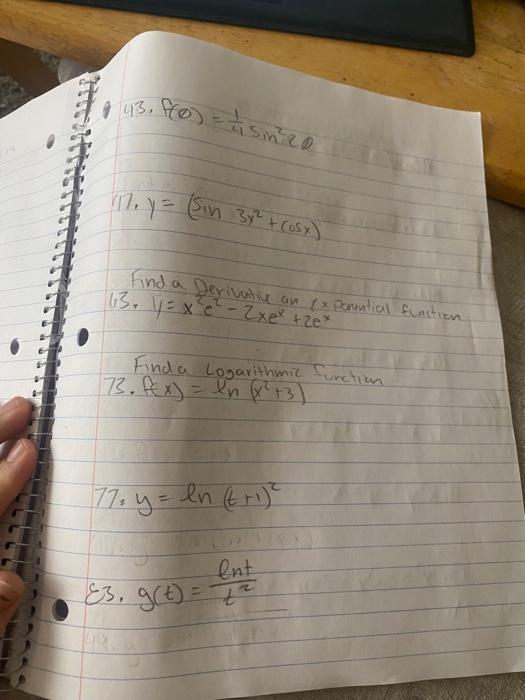 43. f(θ) = 1/4 sin² 2θ
47. y = (sin 3x² + cosx)
Find a Derivative an exponential function
63. y = x²e² - 2xe^x + 2e^x
Find a Logarithmic function
73. f(x) = ln (x²+3)
77. y = ln (t+1)²
83. g(t) = lnt/t²